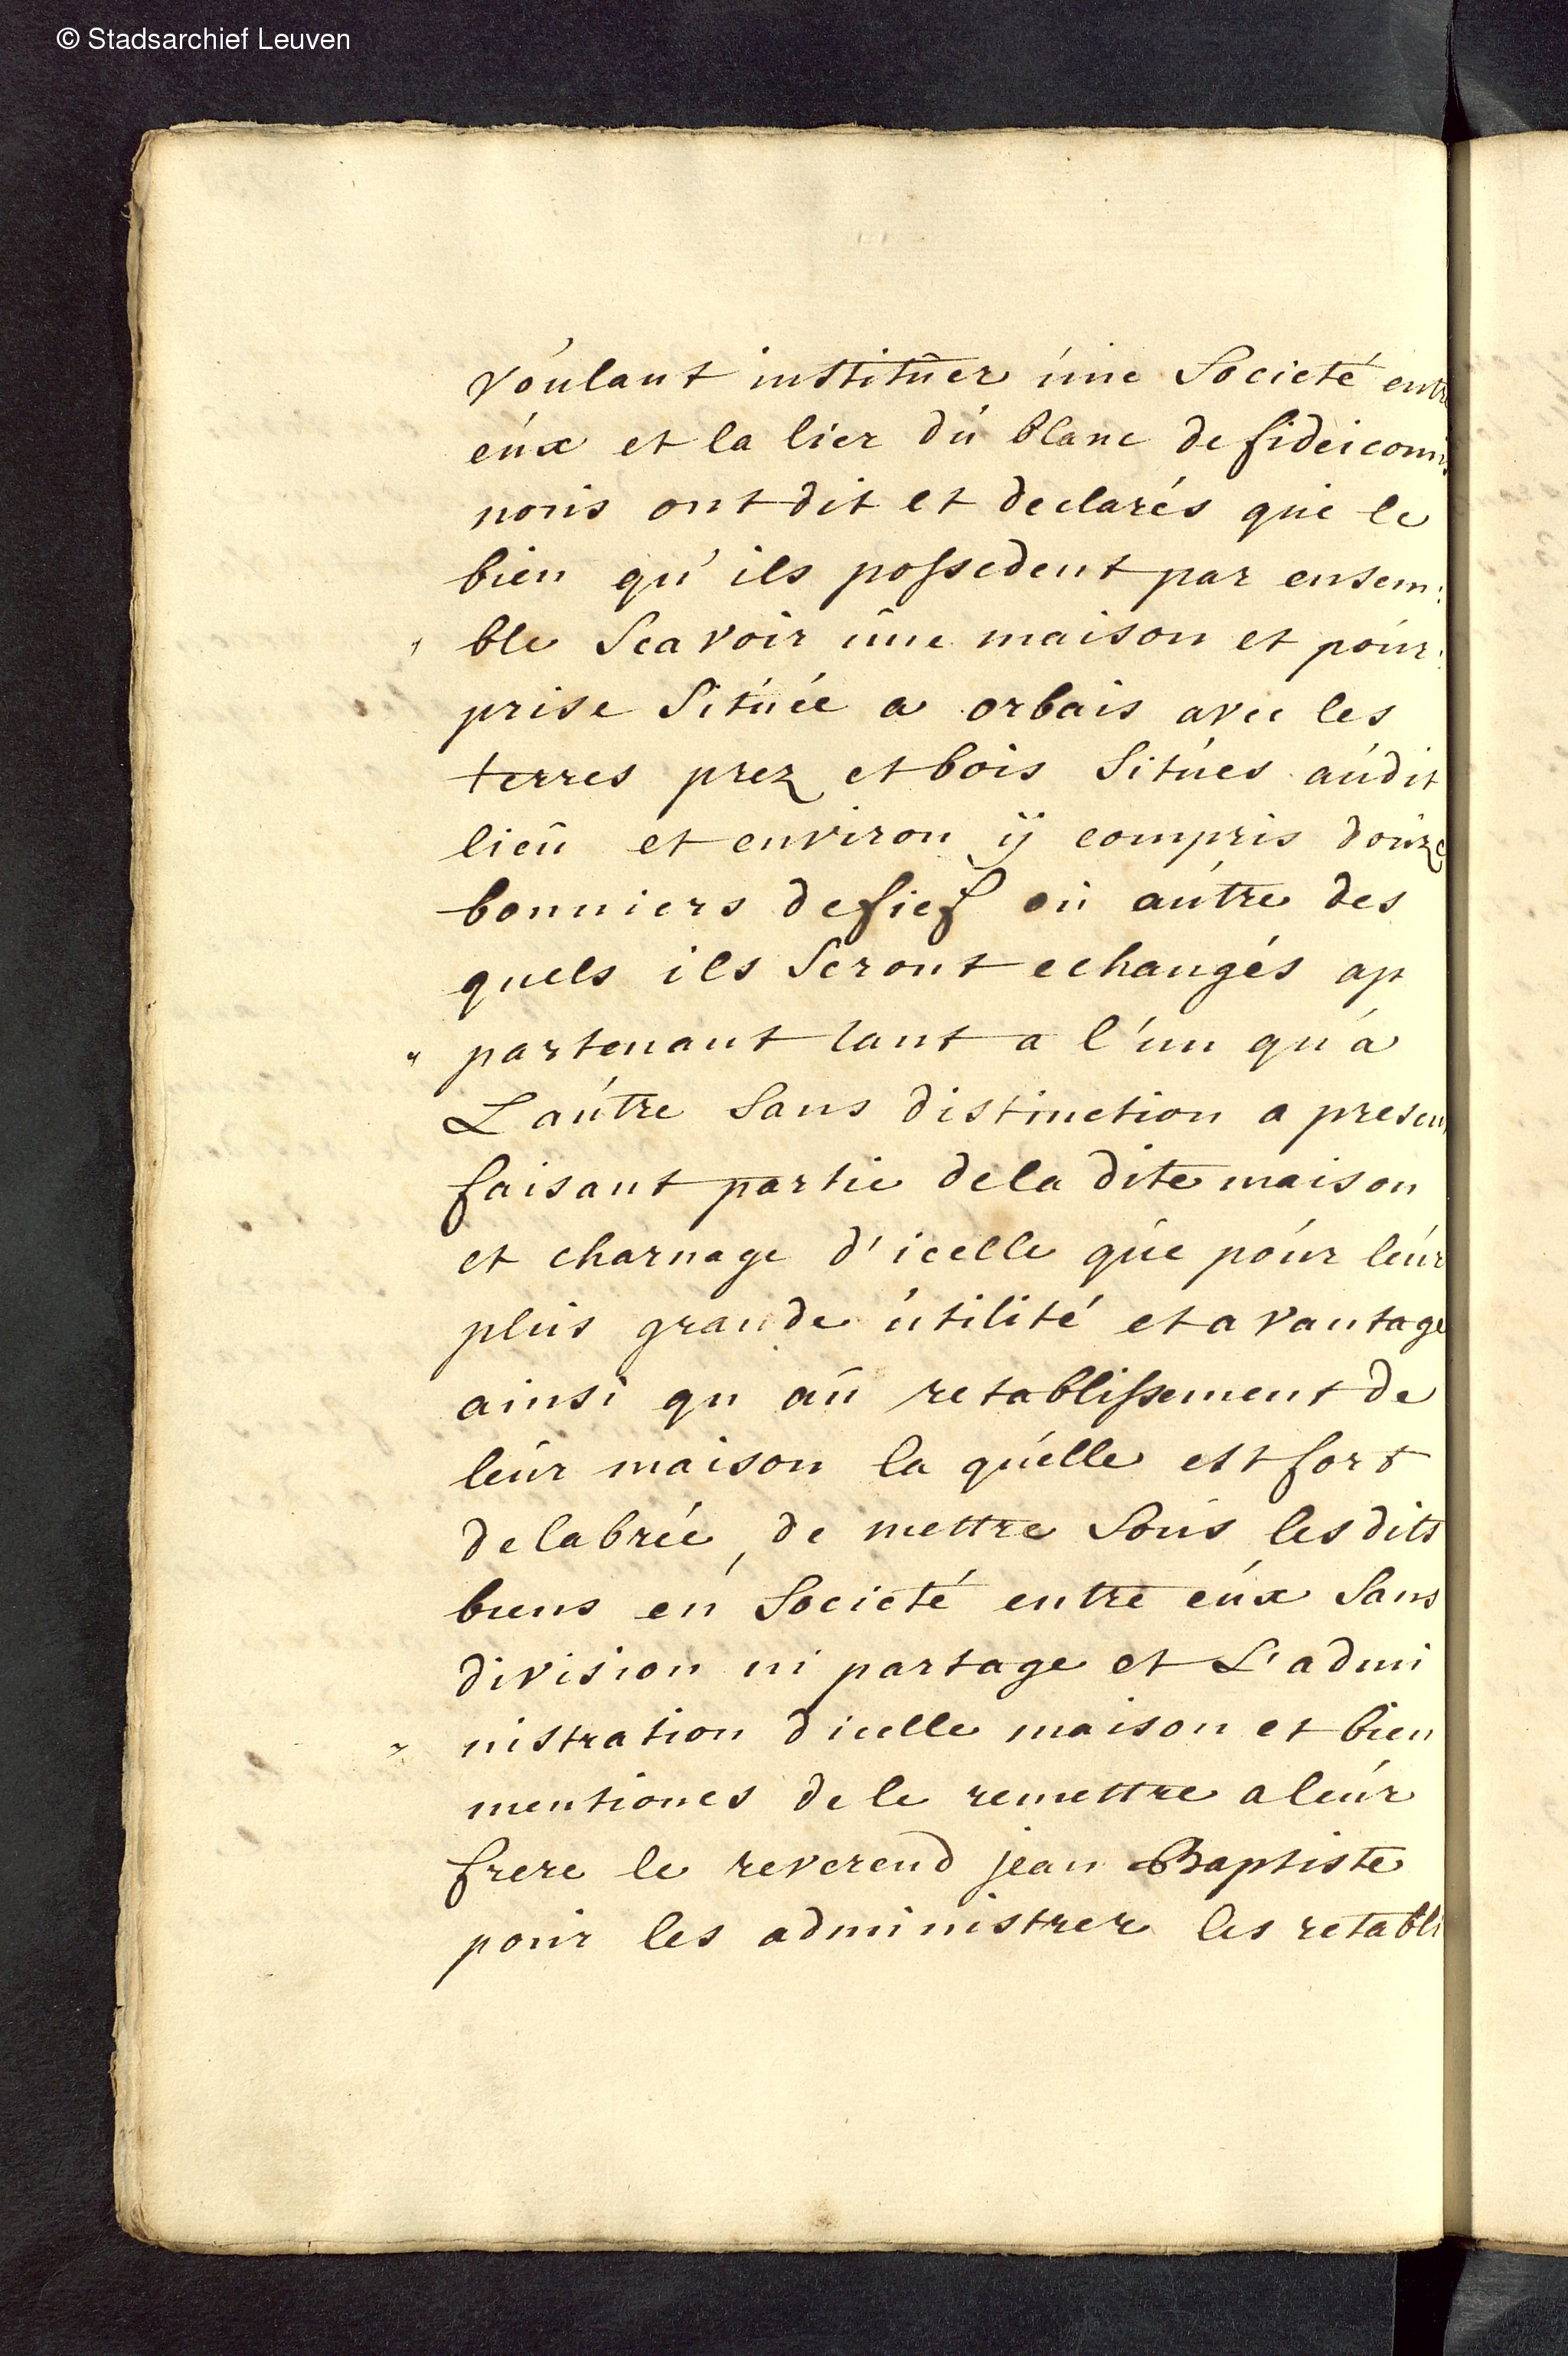 © Stadsarchief Leuven
voulant instituer une Societé entre
eux et la lier du blanc de fideicomis
nous ont dit et declarés que le
bien qu'ils possedent par ensem:
ble Scavoir une maison et pour:
prise Située a orbais avec les
terres prez et bois Situés audit
lieu et environ ÿ compris douze
bonniers de fief ou autre des
quels ils Seront echangés ap
partenant tant a l'un qu'a
L'autre Sans distinction a presen
faisant partie dela dite maison
et charnage d'icelle que pour leur
plus grande utilité et avantage
ainsi qu au retablissement de
leur maison la quelle est fort
delabrée, de mettre Sous les dits
biens en Societé entre eux Sans
division ni partage et L'admi
nistration dicelle maison et bien
mentiones de le remettre a leur
frere le reverend jean Baptiste
pour les administrer les retabli